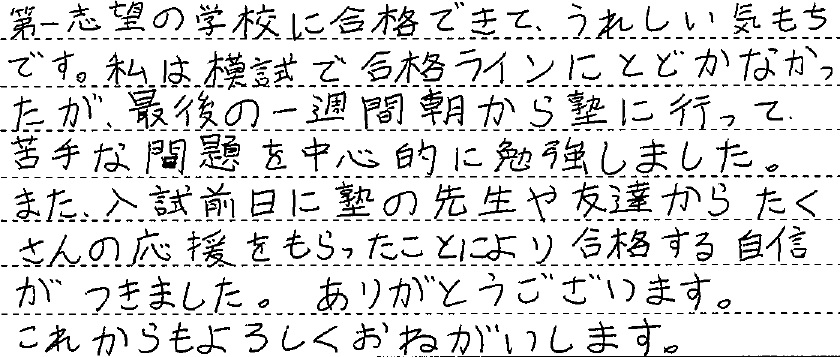 第一志望の学校に合格できて、うれしい気もち
です。私は模試で合格ラインにとどかなかっ
たが、最後の一週間朝から塾に行って、
苦手な問題を中心的に勉強しました。
また、入試前日に塾の先生や友達からたく
さんの応援をもらったことにより合格する自信
がつきました。ありがとうございます。
これからもよろしくおねがいします。